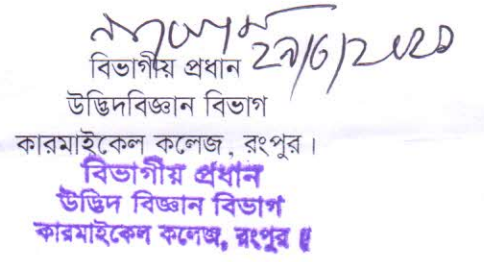 বিভাগীয় প্রধান
উদ্ভিদবিজ্ঞান বিভাগ
কারমাইকেল কলেজ, রংপুর।
বিভাগীয় প্রধান
উদ্ভিদ বিজ্ঞান বিভাগ
কারমাইকেল কলেজ, রংপুর॥